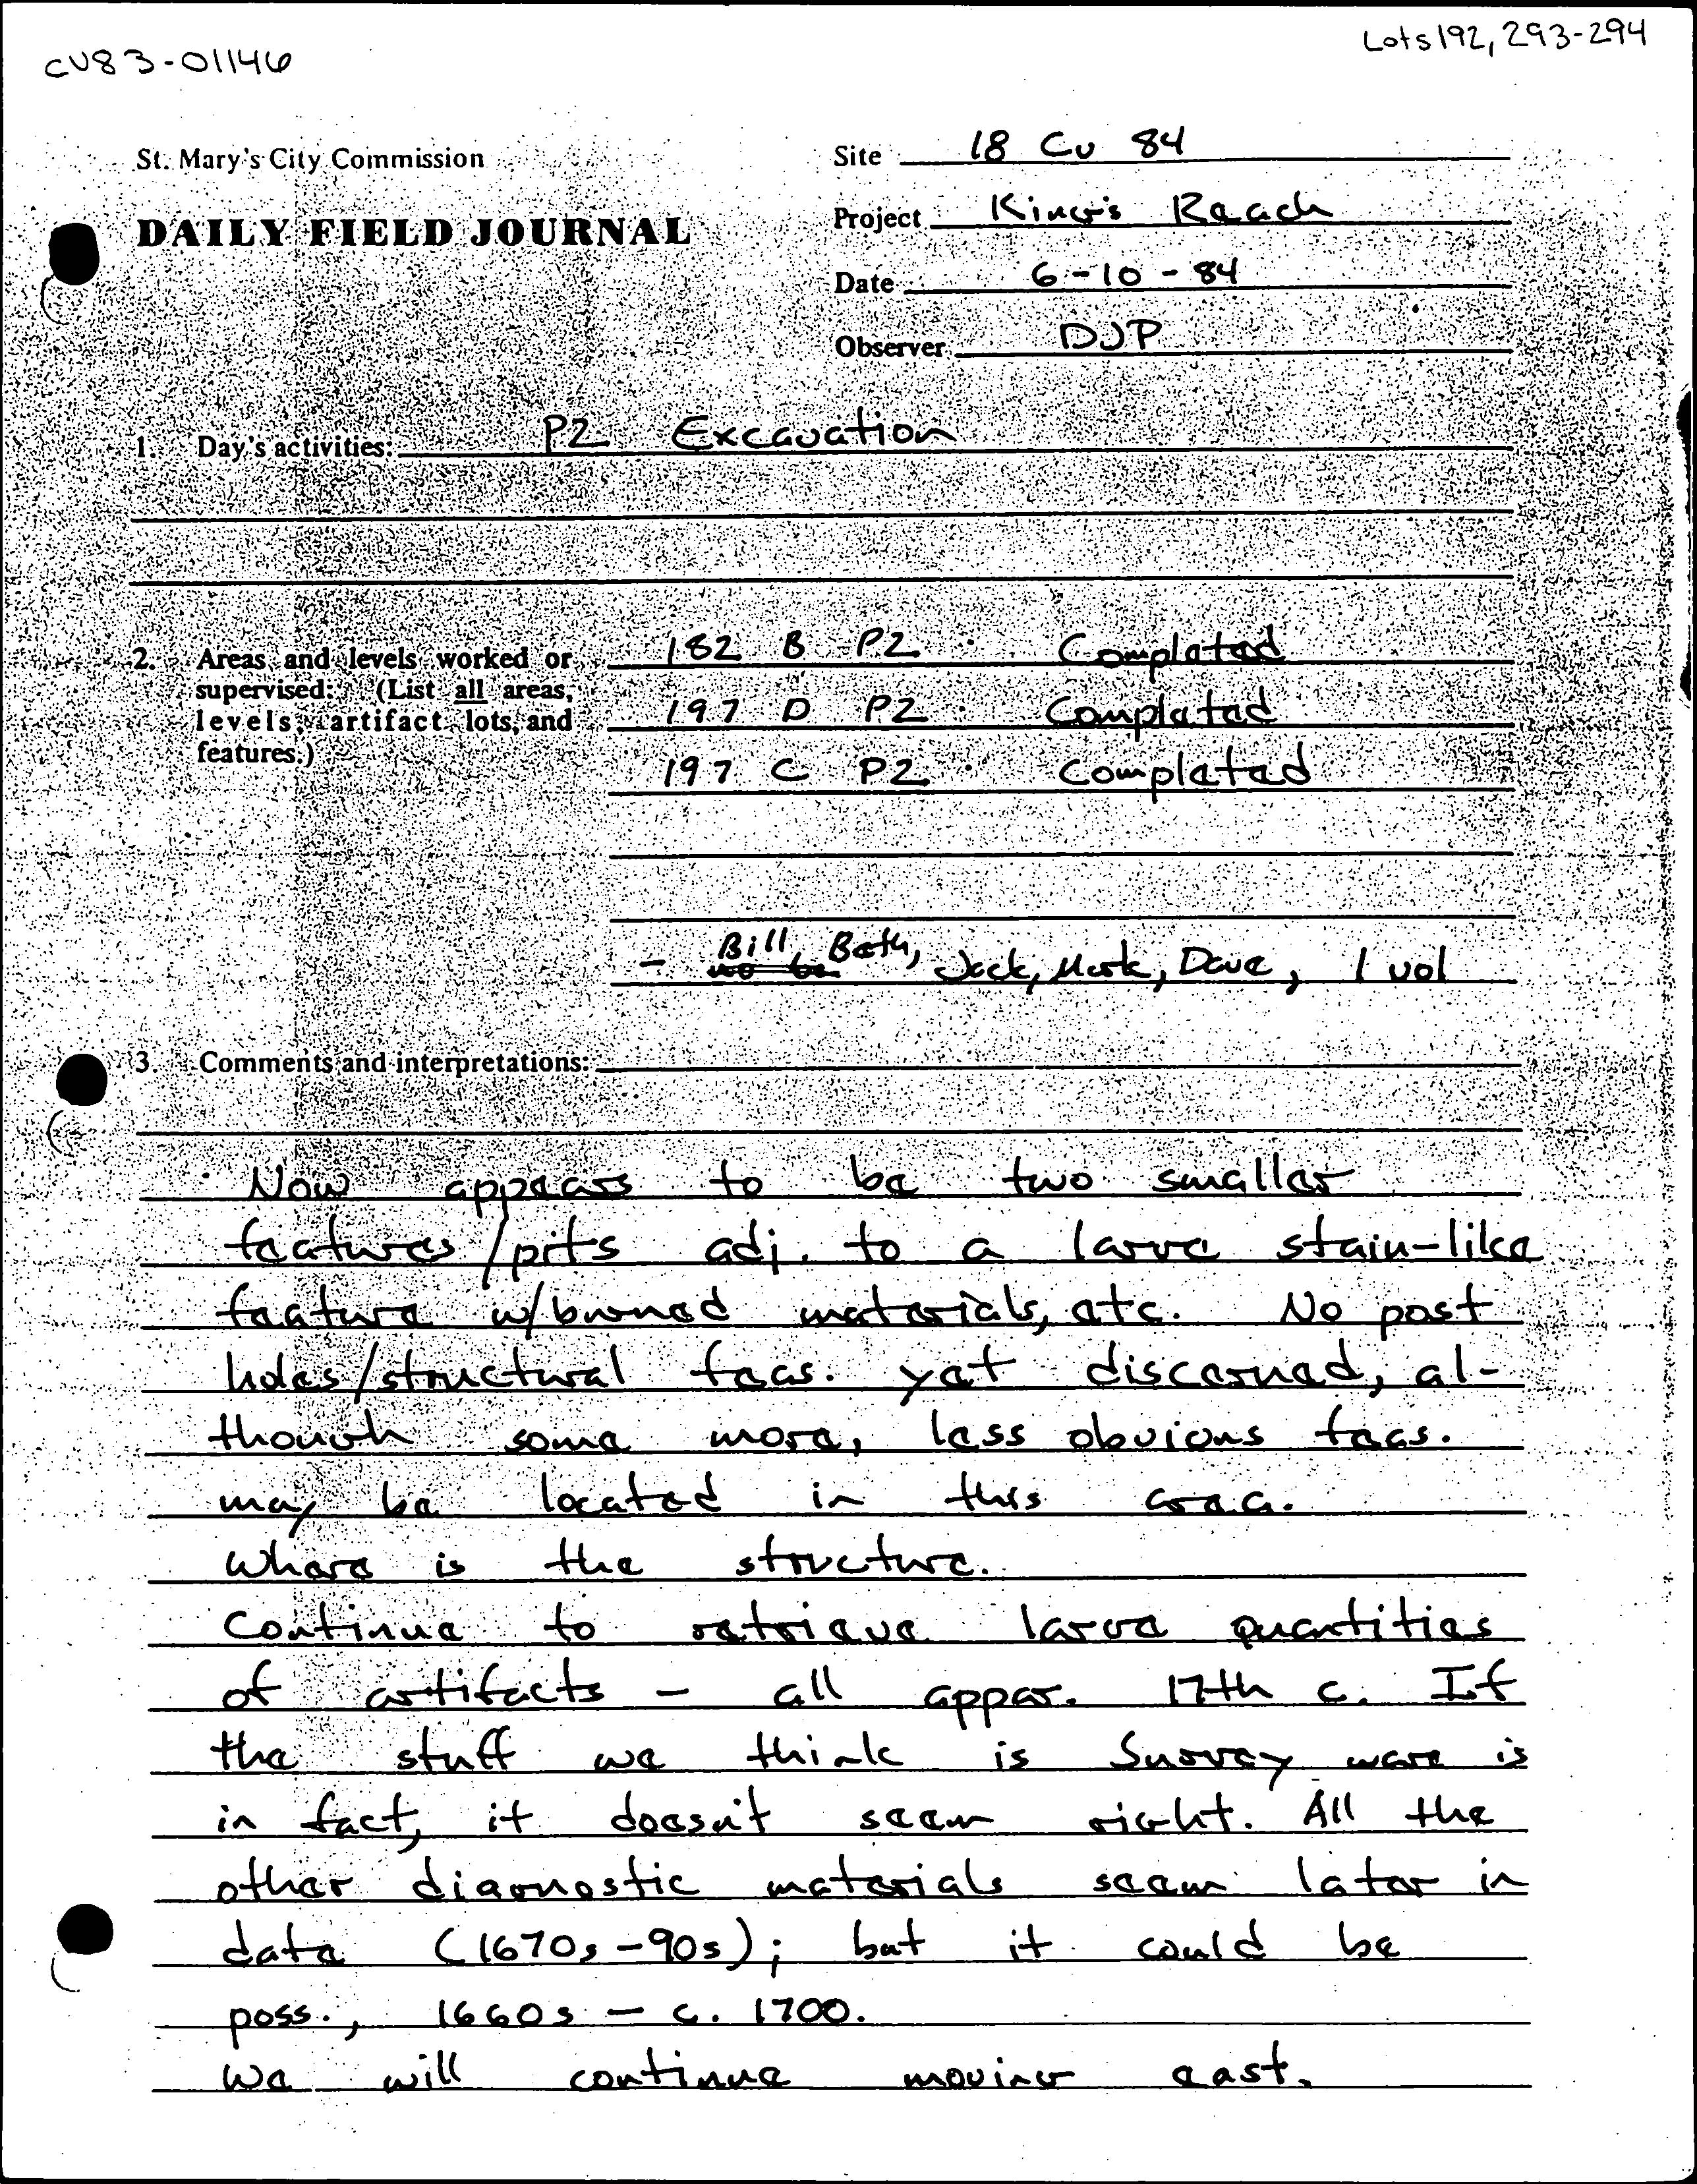 CV83-01146
Lots 192, 293-294
St. Mary's City Commission
Site 18 Cv 84
DAILY FIELD JOURNAL
Project King's Reach
Date 6-10-84
Observer DJP
1. Day's activities: PZ Excavation
2. Areas and levels worked or supervised: (List all areas, levels, artifact lots, and features.)
182 B PZ : Completed
197 D PZ : Completed
197 C PZ : Completed
- Bill, Beth, Jack, Mark, Dave, 1 vol
3. Comments and interpretations:
Now appears to be two smaller
features/pits adj. to a large stain-like
feature w/burned materials, etc. No post
holes/structural feas. yet discerned, al-
though some more, less obvious feas.
may be located in this area.
Where is the structure.
Continue to retrieve large quantities
of artifacts - all appar. 17th c. If
the stuff we think is Surrey ware is
in fact, it doesn't seem right. All the
other diagnostic materials seem later in
date (1670s-90s); but it could be
poss., 1660s - c. 1700.
We will continue moving east.